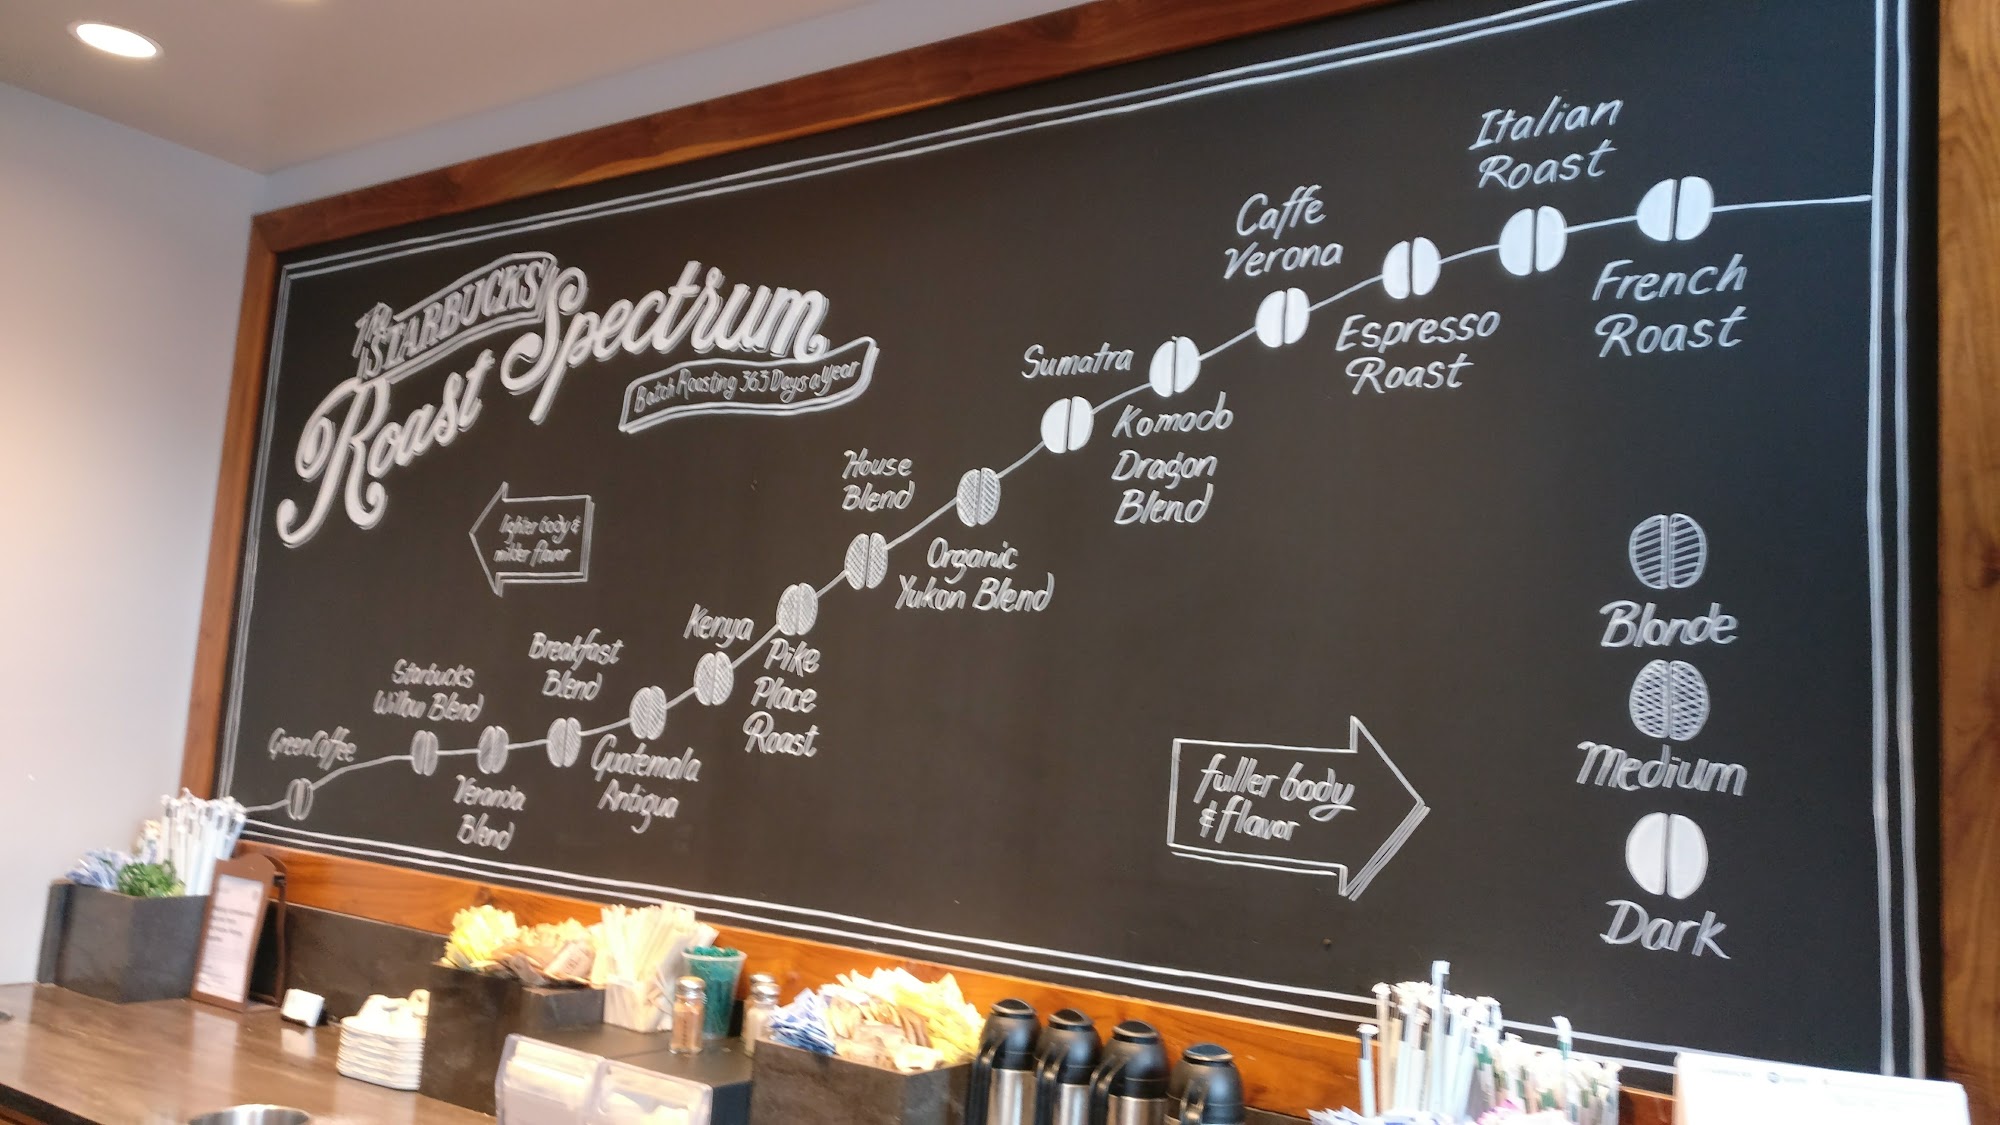 The
STARBUCKS
Roast Spectrum
Batch Roasting 363 Days a year
lighter body &
milder flavor
Green Coffee
Starbucks
Willow Blend
Veranda
Blend
Breakfast
Blend
Guatemala
Antigua
Kenya
Pike
Place
Roast
House
Blend
Organic
Yukon Blend
Sumatra
Komodo
Dragon
Blend
Caffe
Verona
Espresso
Roast
Italian
Roast
French
Roast
fuller body
& flavor
Blonde
Medium
Dark